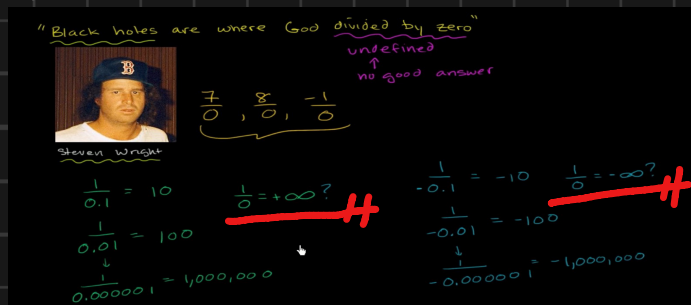 "Black holes are where God divided by zero"
undefined
↑
no good answer
B
7/0, 8/0, -1/0
Steven Wright
1/0.1 = 10
1/0 = +∞?
1/0.01 = 100
↓
1/0.000001 = 1,000,000
1/-0.1 = -10
1/0 = -∞?
1/-0.01 = -100
↓
1/-0.000001 = -1,000,000